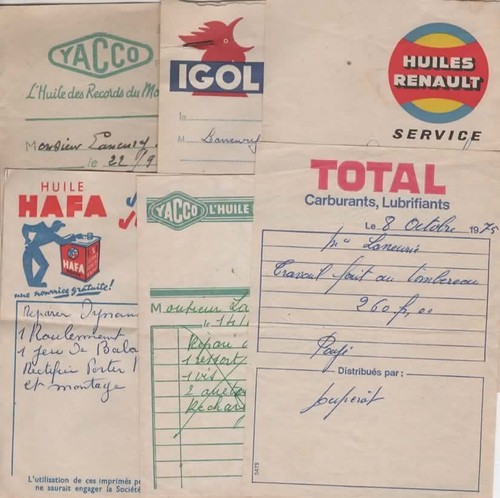 YACCO
L'Huile des Records du Mo
Monsieur
le 22/9
IGOL
la
M
HUILES
RENAULT
SERVICE
HUILE
HAFA
HAFA
une nourrice gratuite!
Réparer Dynam
1 Roulement
1 jeu de Bala
Rectifier Porter
et montage
L'utilisation de ces imprimés p
ne saurait engager la Société
YACCO L'HUILE
Monsieur
le 14/
1 ressort
1 vis
Rechar
TOTAL
Carburants, Lubrifiants
Le 8 Octobre 1975
Mr Laneurie
Travail fait au tombereau
260 fr,00
Payé
Distribués par :
5475